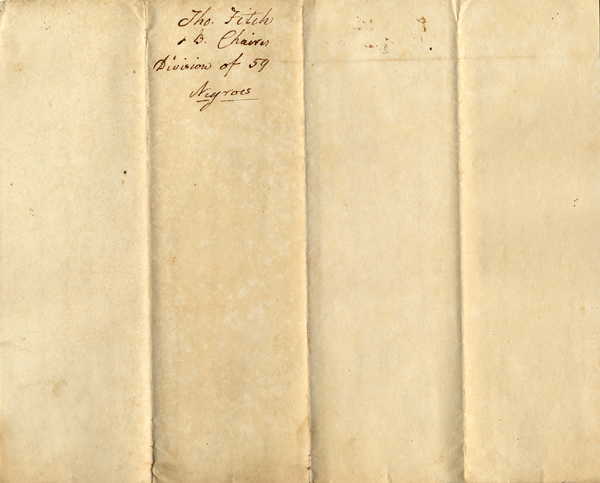 Tho. Fitch
& B. Chaires
Division of 59
Negroes